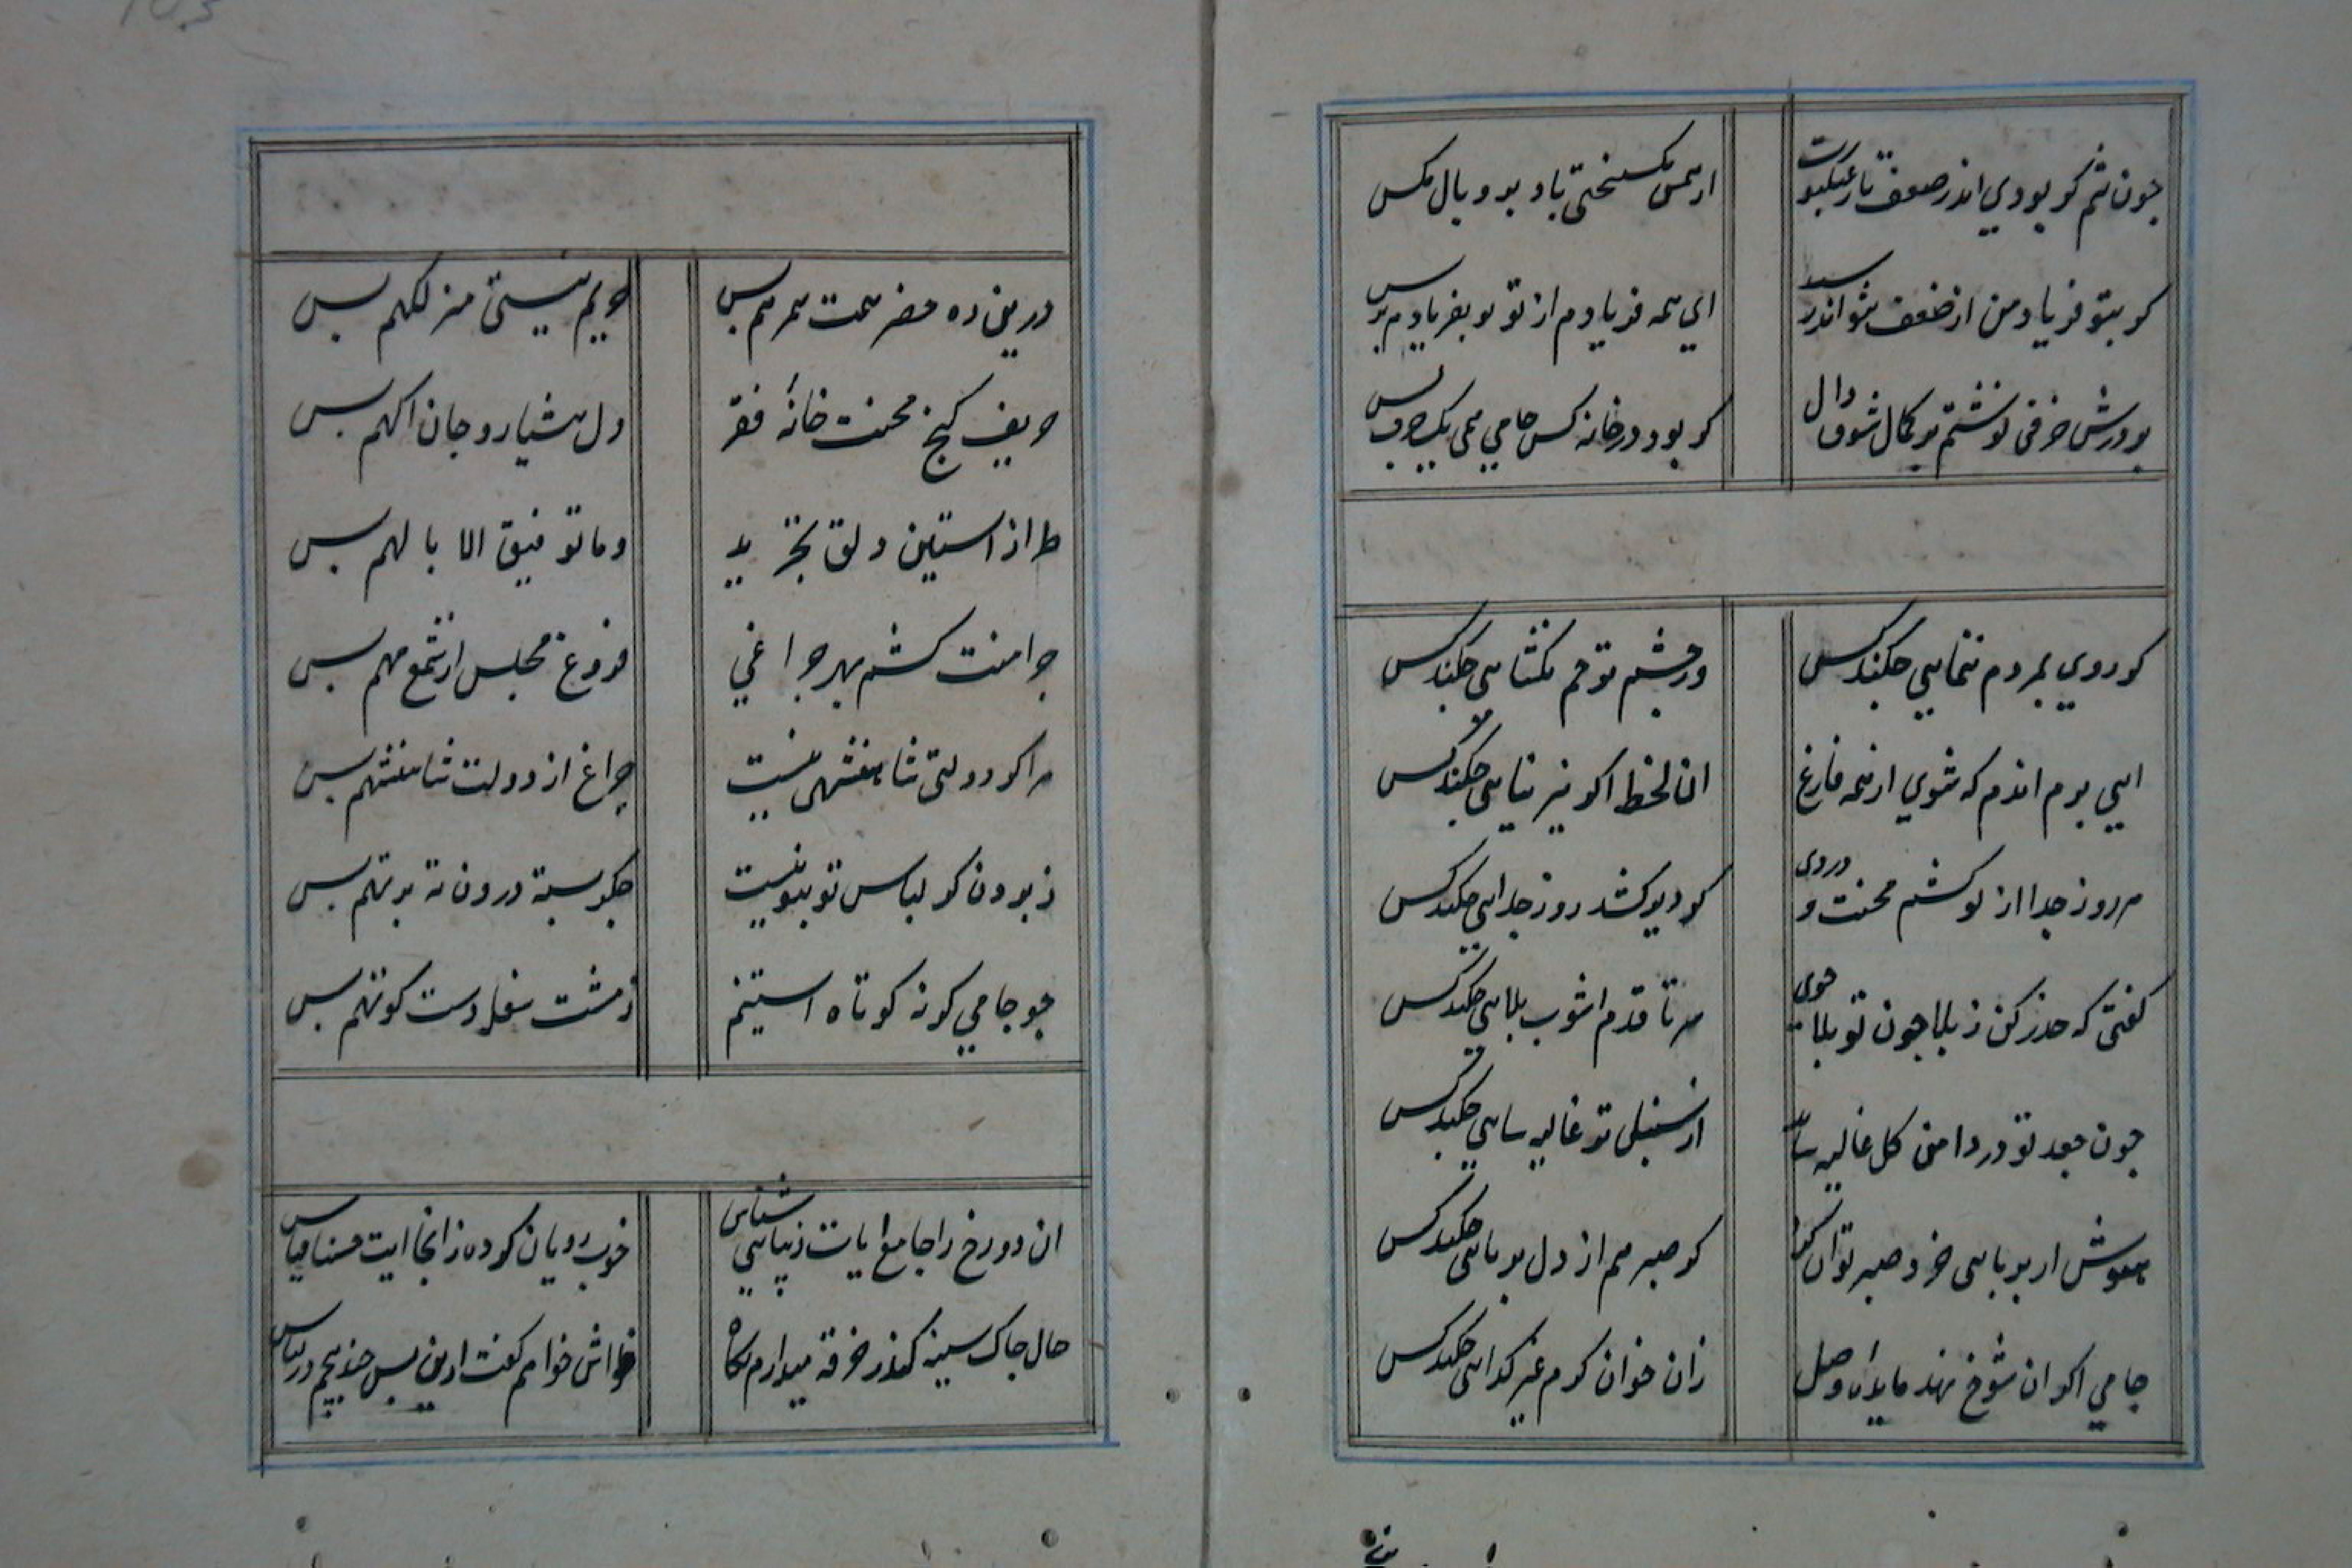 چون تنم کو بودی اندر ضعف تار عنکبوت
از همس سختی باد بر و بال مکس
کر بتو فریاد من از ضعف نتواند رسید
ای همه فریادم از تو تو بفریادم برس
بر درش حرفی نوشتم بر کمال شوق دال
کر بود در خانه کس جامی همی یک حرف بس
کر روی بمردم ننمایی چکند کس
ور چشم ترحم نکشایی چکند کس
ایی برم اندم که شوی از همه فارغ
ان لحظه اکر نیز نیایی چکند کس
هر روز جدا از تو کشم محنت و دردی
کر دیر کشد روز جدایی چکند کس
کفتی که حذر کن ز بلا چون تو بلا جوی
سر تا قدم اشوب بلایی چکند کس
چون جعد تو در دامن کل غالیه سا
از سنبل تر غالیه سایی چکند کس
هوش ار بربایی خرد و صبر توان کرد
کر صبر هم از دل بربایی چکند کس
جامی اکر ان شوخ نهد مایده وصل
زان خوان کرم غیر کدایی چکند کس
درین ره خضر همت همرهم بس
حریم نیستی منزلکهم بس
حریف کنج محنت خانهٔ فقر
دل هشیار و جان اکهم بس
طراز استین دلق تجرید
وما توفیق الا بالهم بس
چرا منت کشم بهر چراغی
فروغ مجلس از شمع مهم بس
مرا کر دولتی شاهنشهی نیست
چراغ از دولت شاهنشهم بس
ز برون کر لباس تو بتو نیست
جکر بسته درون ته بر تهم بس
چو جامی کر نه کوتاه استینم
ز مشت سفله دست کوتهم بس
ان دو رخ را جامع ایات زیبایی شناس
خوب رویان کرده زانجا ایت حسن اقتباس
حال چاک سینه کاندر خرقه میدارم نکاه
فاش خواهم کفت ازین پس چند پیچم در لباس